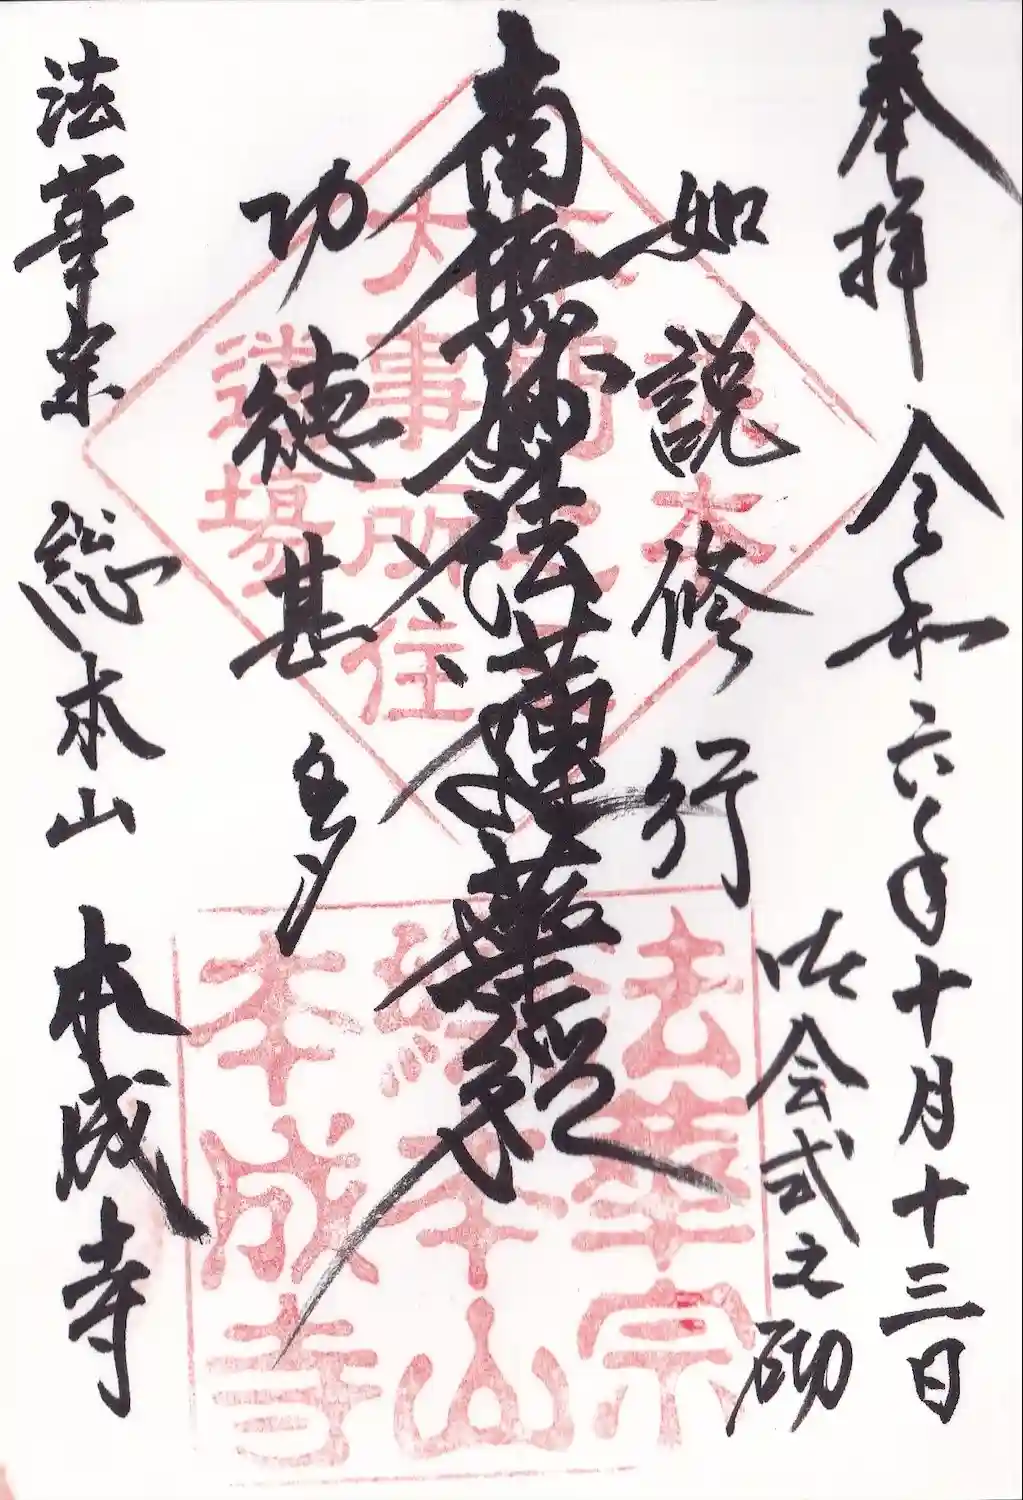 奉拝 令和六年十月十三日
御会式之砌
如説修行
南無妙法蓮華經
功徳甚多
法華宗 総本山 本成寺
大事所住
道場
法華宗
總本山
本成寺